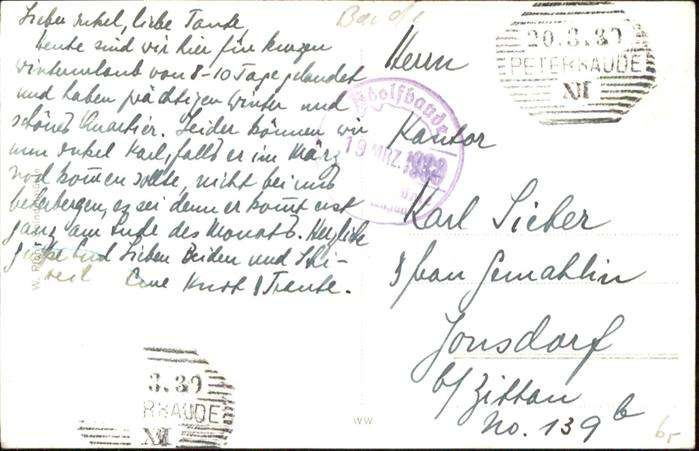 Lieber Onkel, liebe Tante,
heute sind wir hier für kurzen
Winterurlaub von 8-10 Tage gelandet
und haben prächtigen Winter und
schönes Quartier. Leider können wir
nun Onkel Karl, falls er im März
noch kom̅en sollte, nicht bei uns
beherbergen, es sei denn er kom̅t erst
ganz am Ende des Monats. Herzliche
Grüße Euch Lieben Beiden und
Eure Kurt & Traute.
Baude
Herrn
Kantor
Karl Sieber
& Frau Gemahlin
Jonsdorf
b/Zittau
No. 139 b
20.3.39
PETERBAUDE
XII
dolfbaude
19. MRZ. 1939
3.39
RBAUDE
XII
WW